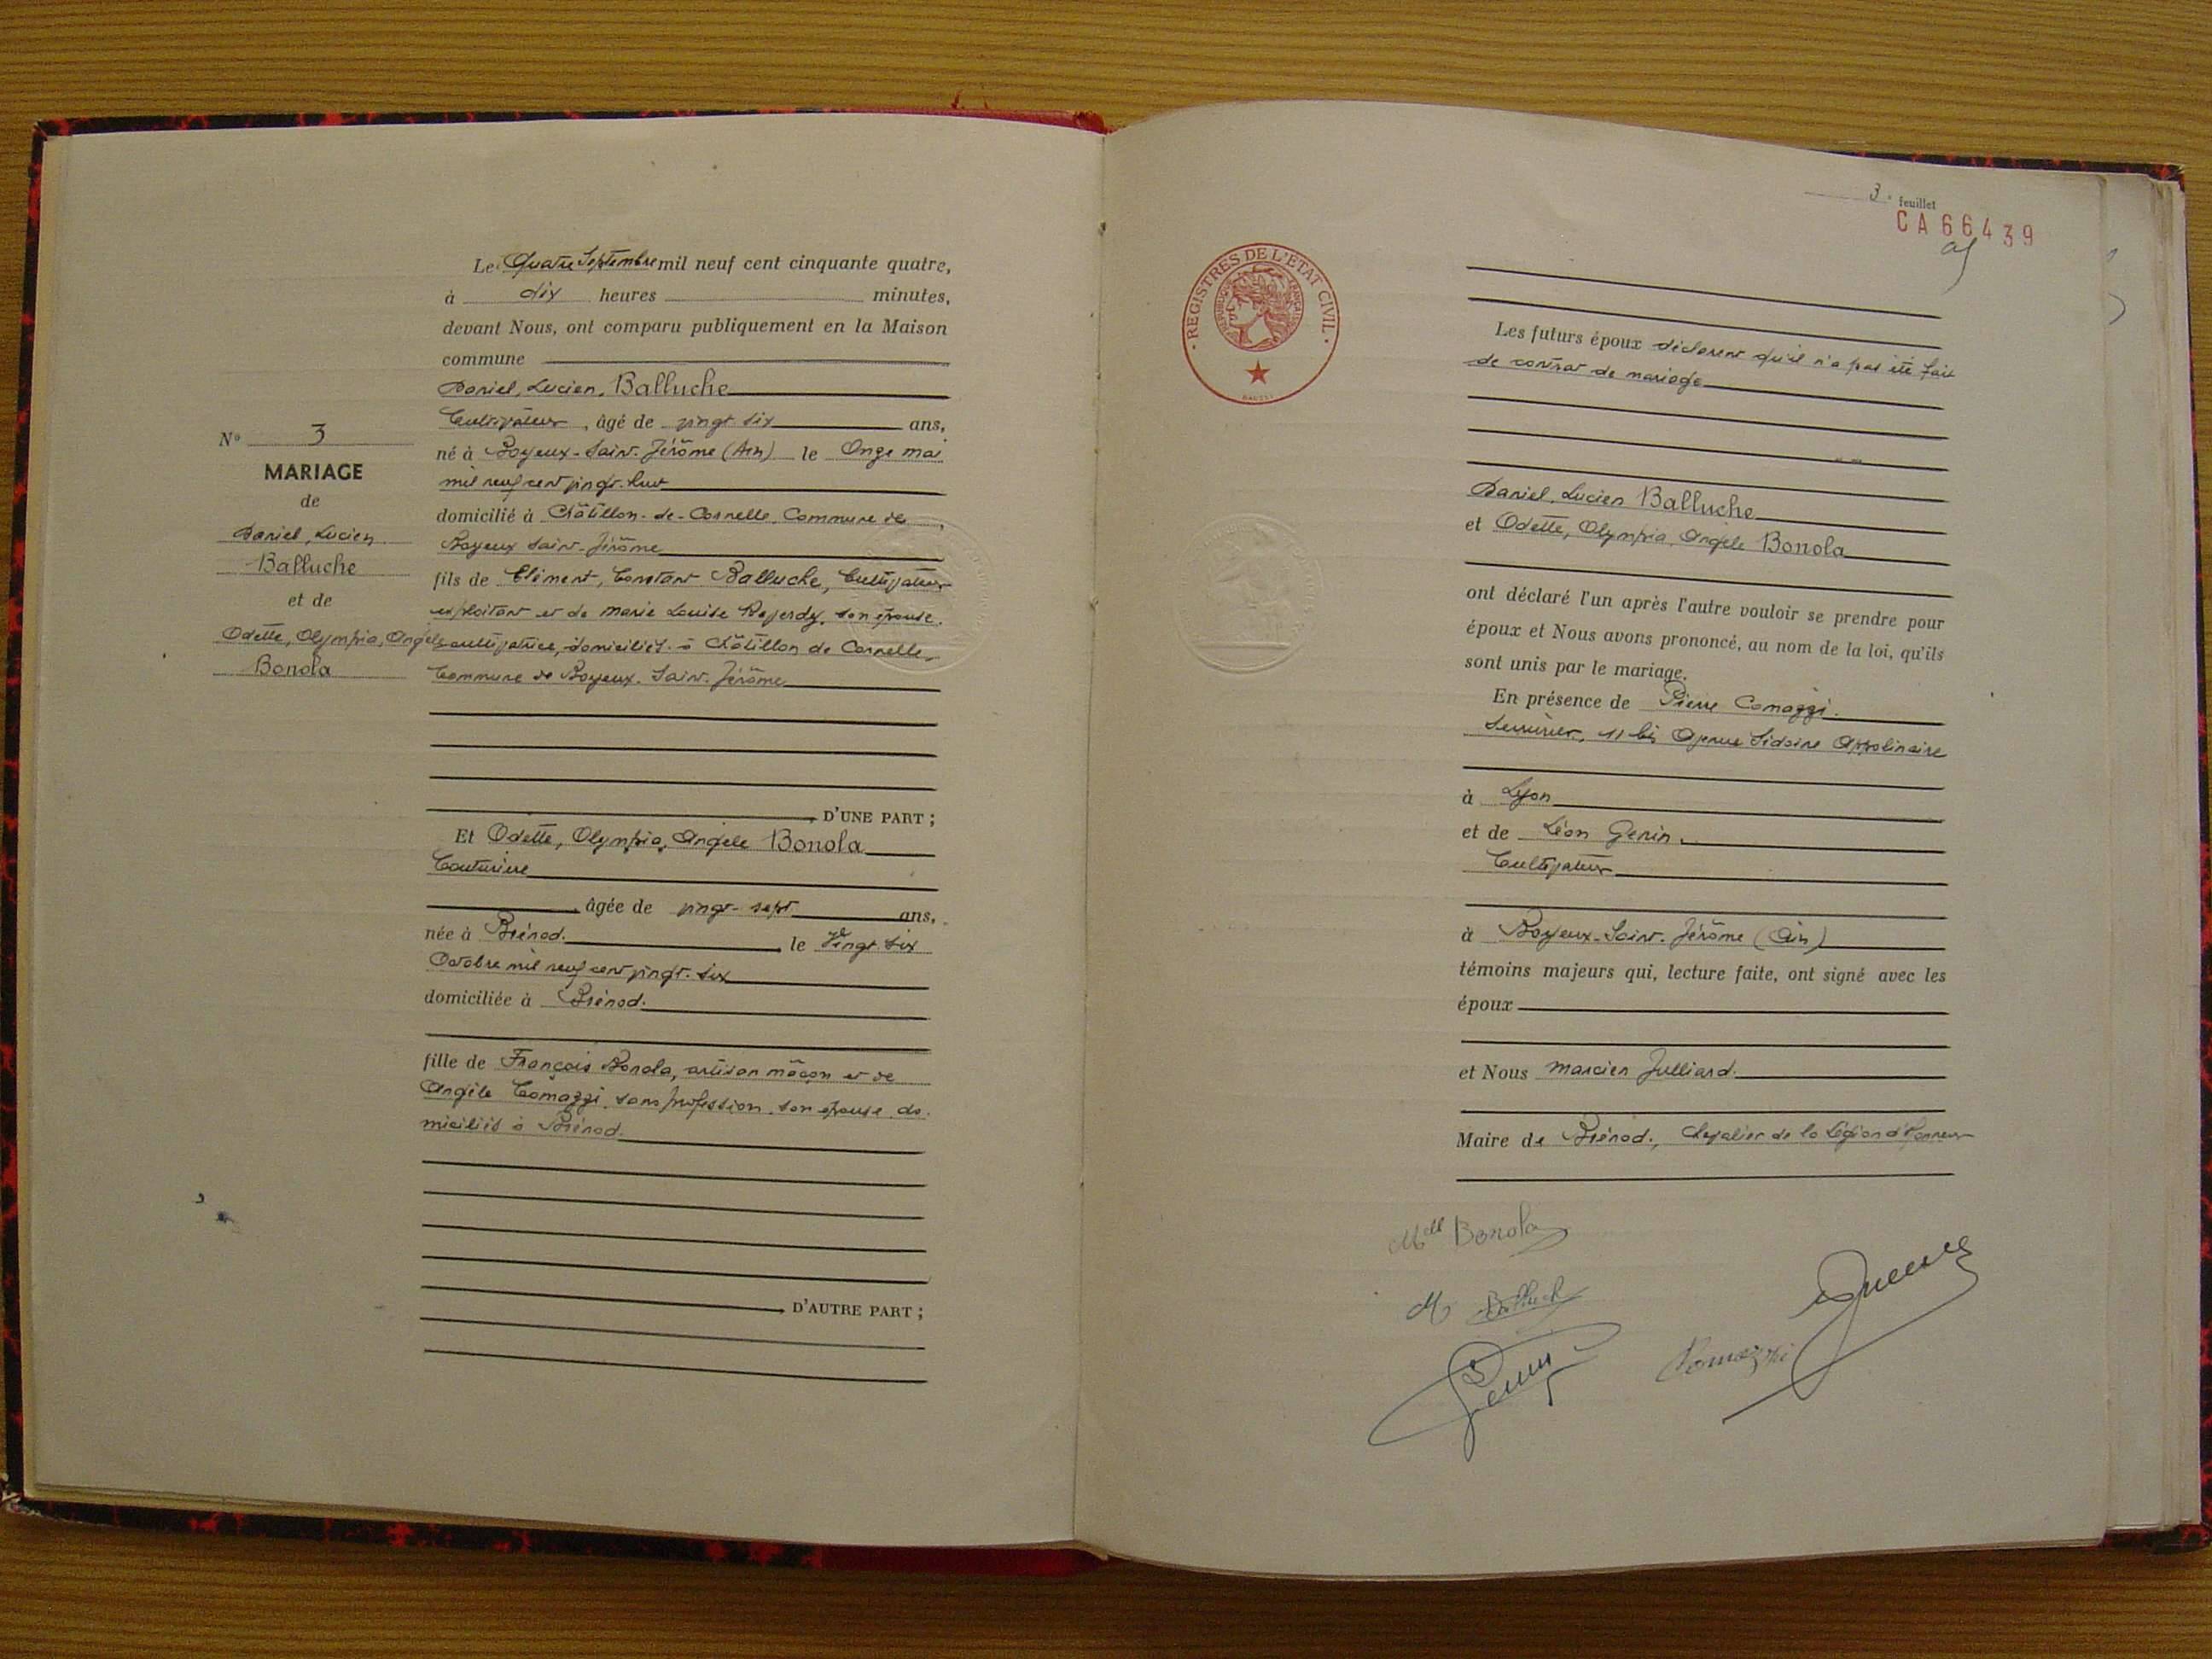 N° 3
MARIAGE
de
Daniel, Lucien
Balluche
et de
Odette, Olympia, Angèle
Bonola
Le Quatre Septembre mil neuf cent cinquante quatre,
à dix heures minutes,
devant Nous, ont comparu publiquement en la Maison
commune
Daniel, Lucien, Balluche
Cultivateur, âgé de vingt six ans,
né à Boyeux-Saint-Jérôme (Ain) le Onze mai
mil neuf cent vingt-huit
domicilié à Châtillon-de-Cornelle, Commune de
Boyeux Saint-Jérôme
fils de Clément, Constant Balluche, Cultivateur
exploitant et de Marie Louise son épouse,
cultivatrice, domiciliés à Châtillon de Cornelle,
Commune de Boyeux-Saint-Jérôme
D'UNE PART ;
Et Odette, Olympia, Angèle Bonola
Couturière
âgée de vingt-sept ans,
née à Brénod. le Vingt six
Octobre mil neuf cent vingt-six
domiciliée à Brénod.
fille de François Bonola, artisan maçon et de
Angèle Comazzi, sans profession, son épouse, do-
miciliés à Brénod.
D'AUTRE PART ;
3e feuillet
CA66439
REGISTRES DE L'ETAT CIVIL
REPUBLIQUE FRANÇAISE
Les futurs époux déclarent qu'il n'a pas été fait
de contrat de mariage
Daniel, Lucien Balluche
et Odette, Olympia, Angèle Bonola
ont déclaré l'un après l'autre vouloir se prendre pour
époux et Nous avons prononcé, au nom de la loi, qu'ils
sont unis par le mariage.
En présence de Pierre Comazzi.
Serrurier, 11 bis Avenue Sidoine Appolinaire
à Lyon
et de Léon Genin.
Cultivateur
à Boyeux-Saint-Jérôme (Ain)
témoins majeurs qui, lecture faite, ont signé avec les
époux
et Nous Marcien Julliard.
Maire de Brénod., Chevalier de la Légion d'Honneur
Mlle Bonola
M Balluch
Genin
Comazzi